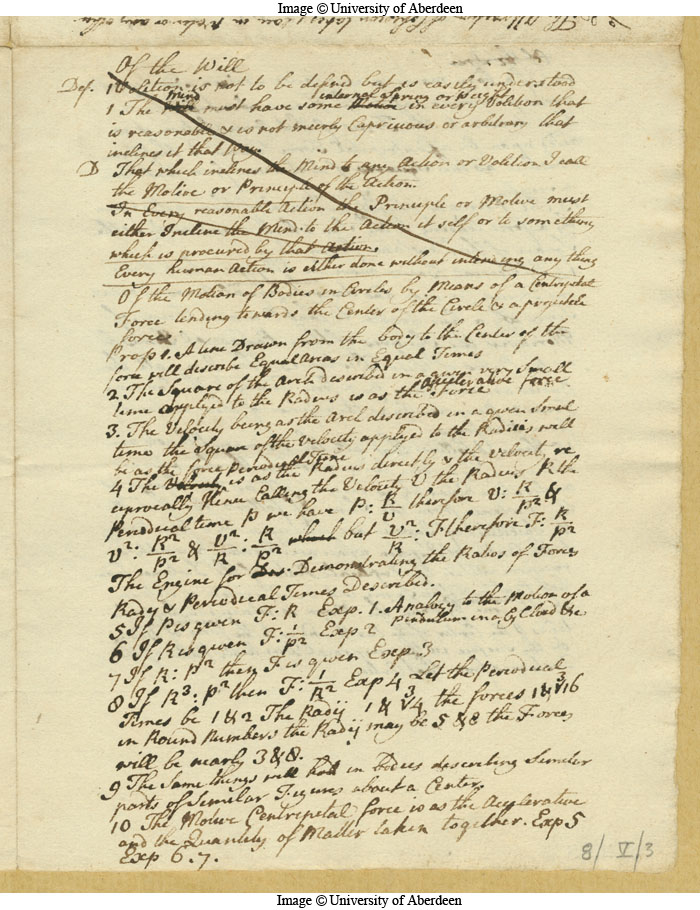 Image © University of Aberdeen
Of the Will
Def. 1 Volition is not to be defind but is easily understood
1 The Mind must have some internal Spring or weight in every Volition that
is reasonable & is not meerly Capricious or arbitrary that
inclines it that Way.
D That which inclines the Mind to any Action or Volition I call
the Motive or Principle of the Action.
In Every reasonable Action the Principle or Motive must
either Incline the Mind to the Action it self or to something
which is procured by that Action.
Every human Action is either done without intending any thing
Of the Motion of Bodies in Circles by Means of a Centripetal
Force tending towards the Center of the Circle & a projectile
force
Prop 1. A line Drawn from the body to the Center of the
force will describe Equal Areas in Equal Times
2. The Square of the Arch described in a given very Small
time applyed to the Radius is as the Accelerative force
3. The Velocity being as the Arch described in a given Small
time the Square of the Velocity applyed to the Radius will
be as the force
4 The Periodical Time is as the Radius directly & the velocity re
ciprocally Hence Calling the Velocity V the Radius R the
Periodical time P we have P: R/V therefore V: R/P &
V²: R²/P² & V²/R: R/P² but V²/R: F therefore F: R/P²
The Engine for Demonstrating the Ratios of Forces
Radij & Periodical Times Described.
5 If P is given F: R Exp. 1. Analogy to the Motion of a
Pendulum in a Cycloid &c
6 If R is given F: 1/P² Exp 2
7 If R: P² then F is given Exp 3
8 If R³: P² then F: 1/R² Exp 4 Let the Periodical
Times be 1 & 2 The Radij 1 & ³√4 the forces 1 & ³√16
in Round Numbers the Radij may be 5 & 8 the Forces
will be nearly 3 & 8.
9 The Same things will hold in bodies describing Similar
parts of Similar Figures about a Center
10 The Motive Centripetal force is as the Accelerative
and the Quantity of Matter taken together. Exp 5
Exp 6. 7.
8/V/3
Image © University of Aberdeen